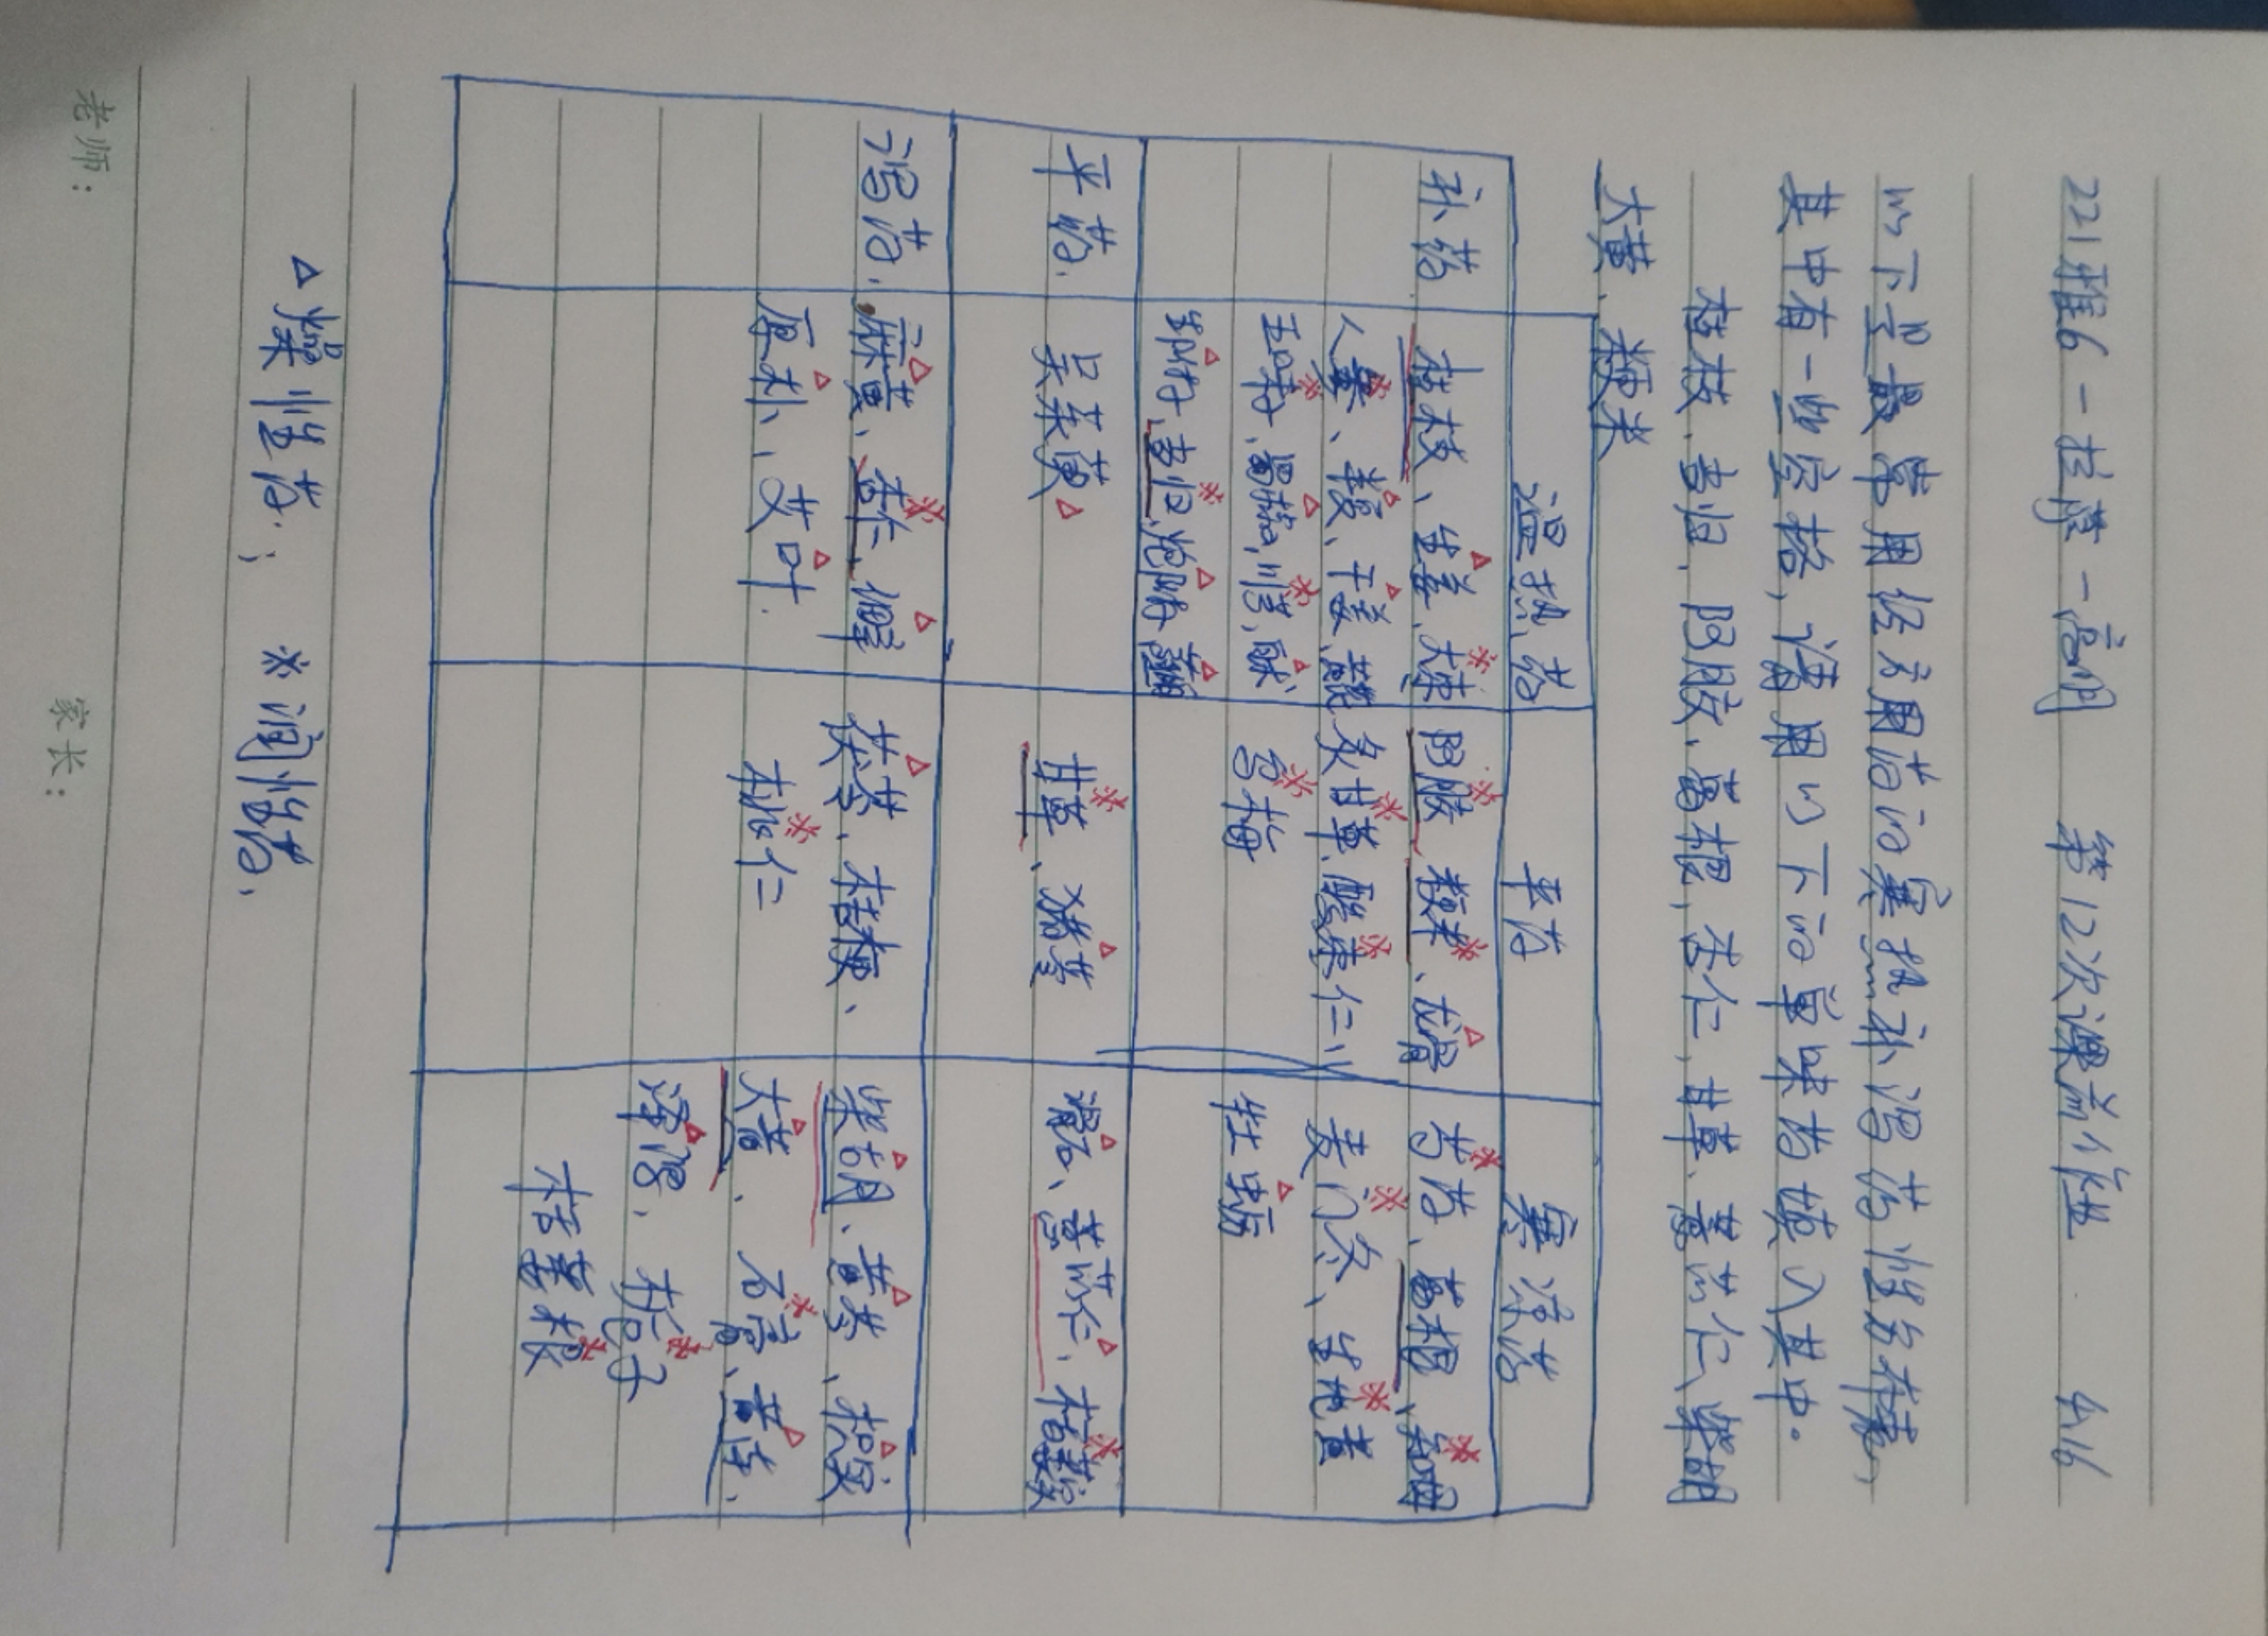 221雅6-拉萨-高明 第12次课前作业 4.16
以下是最常用经方用药的寒热补泻药性分布表、
其中有一些空格,请用以下的单味药填入其中。
桂枝、当归、阿胶、葛根、杏仁、甘草、薏苡仁、柴胡
大黄、粳米
温热药 平药 寒凉药
补药 桂枝、生姜、大枣 阿胶、粳米、龙骨 芍药、葛根、知母
人参、半夏、干姜、黄芪 炙甘草、酸枣仁 麦门冬、生地黄
五味子、蜀椒、川芎 乌梅 牡蛎
当归、炮附子
平药. 吴茱萸 甘草、猪苓 滑石、薏苡仁、栝蒌实
泻药. 麻黄、杏仁、细辛 茯苓、桔梗、 柴胡、黄芩、枳实
厚朴、艾叶. 桃仁 大黄、石膏、黄连、
泽泻、栀子
栝蒌根
△燥性药.; ※润性药.
老师: 家长: